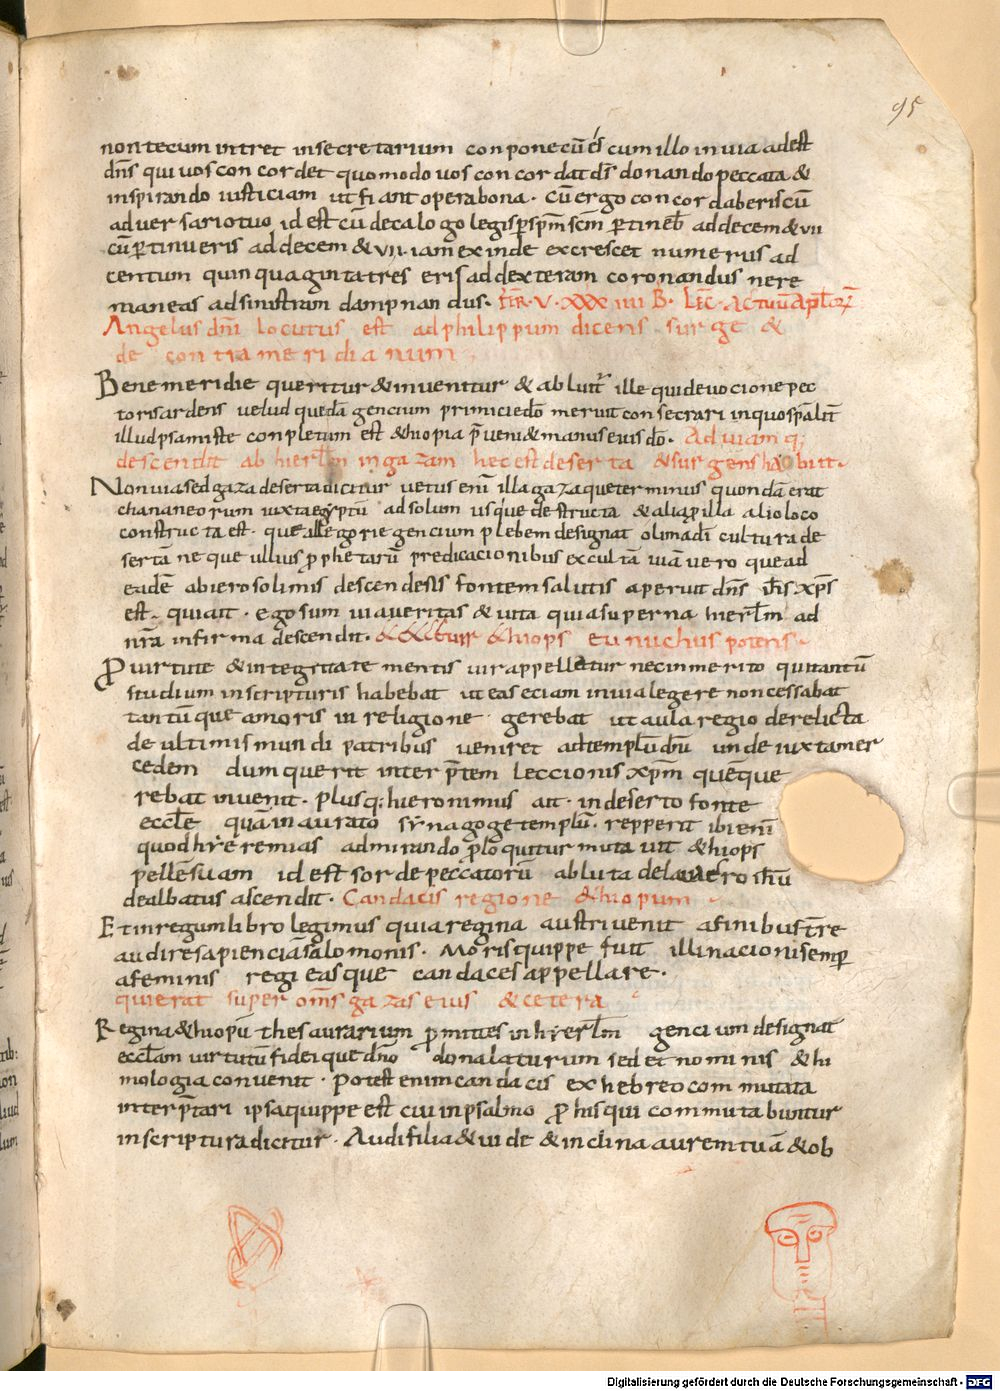 95
non tecum intret in secretarium conpone cū eis cum illo in via adest
dn̄s qui uos concordet quomodo uos concordat ds̄ donando peccata &
inspirando iusticiam ut fiant opera bona. Cū ergo concordaberis cū
aduersario tuo id est cū decalogo legis p̱ sp̄m sc̄m p̱tineb̄ ad decem & vii
cū p̱tinueris ad decem & vii. iam exinde excrescet numerus ad
centum quinquaginta tres eris ad dexteram coronandus ne re
maneas ad sinistram dampnandus. fēr. V. XXXIIII B. Lēc. Actuū Apl̄orum
Angelus dn̄i locutus est ad philippum dicens surge &
de contra meridianum
Bene meridie queritur & inuenitur & abluit̄ ille qui deuocione pec
toris ardens uelud quedā gencium primicie dō meruit consecrari in quo sp̄alit̄
illud psamiste conpletum est &hiopia p̄ueni& manus eius dō. Ad uiam q;
descendit ab hierl̄m in gazam hec est deserta & surgens habiit.
Non uia sed gaza deserta dicitur uetus enī illa gaza que terminus quondā erat
chananeorum iuxta egyptū ad solum usque destructa & alia p̱ illa alio loco
constructa est. que allegorie gencium plebem designat olim a dī cultura de
sertā neque ullius p̱phetarū predicacionibus excultā uiā uero que ad
eādē ab ierosolimis descendens fontem salutis aperuit dn̄s ih̄s xp̄s
est. qui ait. ego sum uia ueritas & uita quia superna hierl̄m ad
nr̄a infirma descendit. &hiops eunuchus potens.
P̱ uirtute & integritate mentis uir appellatur nec inmerito qui tantū
studium in scripturis habebat ut eas eciam in uia legere non cessabat
tantūque amoris in religione gerebat ut aula regio derelicta
de ultimis mundi patribus ueniret ad templū dn̄i unde iuxta mer
cedem dum querit interp̄tem leccionis xp̄m quē que
rebat inuenit. plusq; hieronimus ait. in deserto fonte
eccl̄e quā in aurato synagoge templū. repperit ibi enī
quod hyeremias admirando p̱loquitur mutauit &hiops
pellē suam id est sorde peccatorū abluta de lauacro ih̄u
dealbatus ascendit. Candacis regione &hiopum
Et in regum libro legimus quia regina austri uenit a finibus tr̄e
audire sapienciā salomonis. Moris quippe fuit illi nacioni semp̱
a feminis regi easque candaces appellare.
qui erat super om̄s gazas eius & cetera
Regina &hiopū thesaurarium p̱mittes in hyerl̄m gencium designat
eccl̄am uirtutū fidei que dn̄o donalaturum sed et nominis &hi
mologia conuenit. Potest enim candacis ex hebreo commutata
interp̄tari ipsa quippe est cui in psalmo p̱ his qui commutabuntur
in scriptura dicitur. Audi filia & uide & inclina aurem tuā & ob
Digitalisierung gefördert durch die Deutsche Forschungsgemeinschaft - DFG